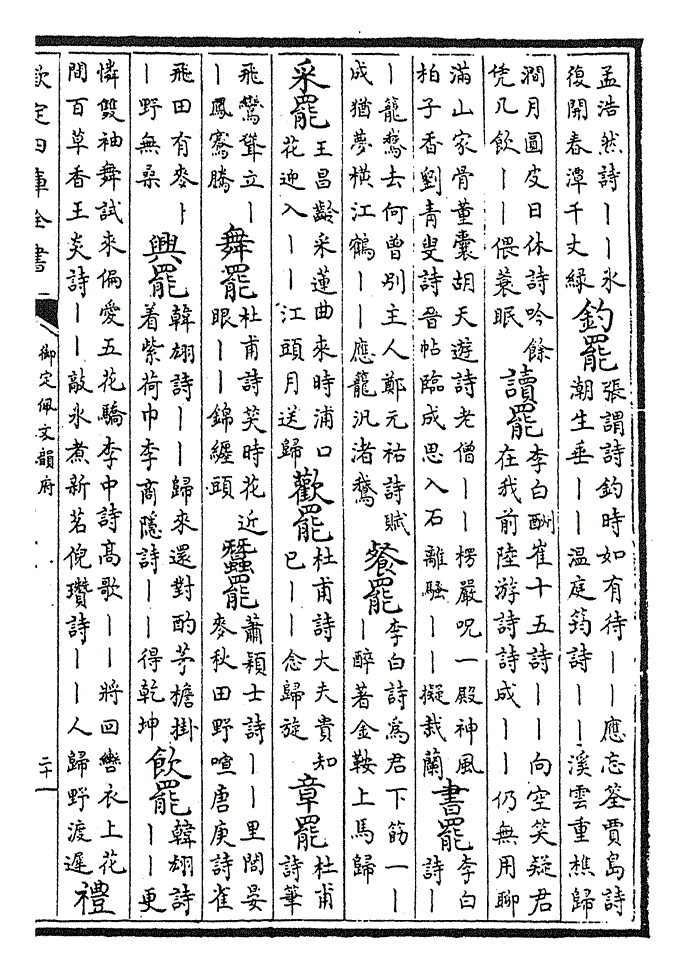 孟浩然詩丨丨氷
復開春潭千丈綠
釣罷
張謂詩釣時如有待丨丨應忘筌賈島詩
潮生垂丨丨溫庭筠詩丨丨溪雲重樵歸
澗月圓皮日休詩吟餘
凭几飲丨丨偎蓑眠
讀罷
李白酬崔十五詩丨丨向空笑疑君
在我前陸游詩詩成丨丨仍無用聊
滿山家骨董囊胡天遊詩老僧丨丨楞嚴呪一殿神風
柏子香劉青叟詩晉帖臨成思入石離騷丨丨擬栽蘭
書罷
李白
詩丨
丨籠鵞去何曾別主人鄭元祐詩賦
成猶夢橫江鶴丨丨應籠汎渚鵞
餐罷
李白詩為君下筯一丨
丨醉著金鞍上馬歸
采罷
王昌齡采蓮曲來時浦口
花迎入丨丨江頭月送歸
歡罷
杜甫詩大夫貴知
已丨丨念歸旋
章罷
杜甫
詩筆
飛鸞聳立丨
丨鳳騫騰
舞罷
杜甫詩笑時花近
眼丨丨錦纏頭
蠶罷
蕭穎士詩丨丨里閭晏
麥秋田野喧唐庚詩雀
飛田有麥丨
丨野無桑
興罷
韓翃詩丨丨歸來還對酌茅檐掛
着紫荷巾李商隱詩丨丨得乾坤
飲罷
韓翃詩
丨丨更
憐雙袖舞試來偏愛五花驕李中詩高歌丨丨將回轡衣上花
間百草香王炎詩丨丨敲氷煮新茗倪瓚詩丨丨人歸野渡遲
禮
欽定四庫全書
御定佩文韻府
二十一